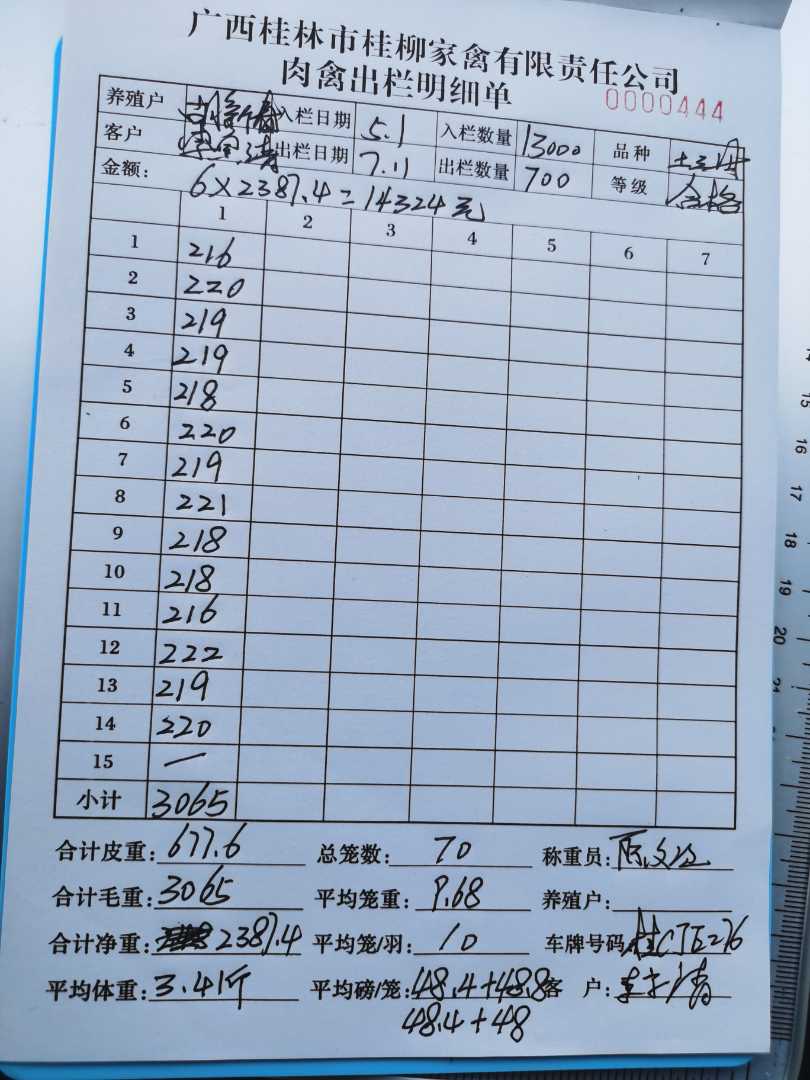 广西桂林市桂柳家禽有限责任公司
肉禽出栏明细单
0000444
养殖户 入栏日期 5.1 入栏数量 13000 品种
客户 出栏日期 7.11 出栏数量 700 等级 合格
金额: 6×2387.4=14324元
1 2 3 4 5 6 7
1 216
2 220
3 219
4 219
5 218
6 220
7 219
8 221
9 218
10 218
11 216
12 222
13 219
14 220
15 一
小计 3065
合计皮重: 677.6 总笼数: 70 称重员:
合计毛重: 3065 平均笼重: 9.68 养殖户:
合计净重: 2387.4 平均笼/羽: 10 车牌号码: 桂CJE276
平均体重: 3.41斤 平均磅/笼: 48.4+48.8 客 户:
48.4+48
14
15
16
17
18
19
20
21